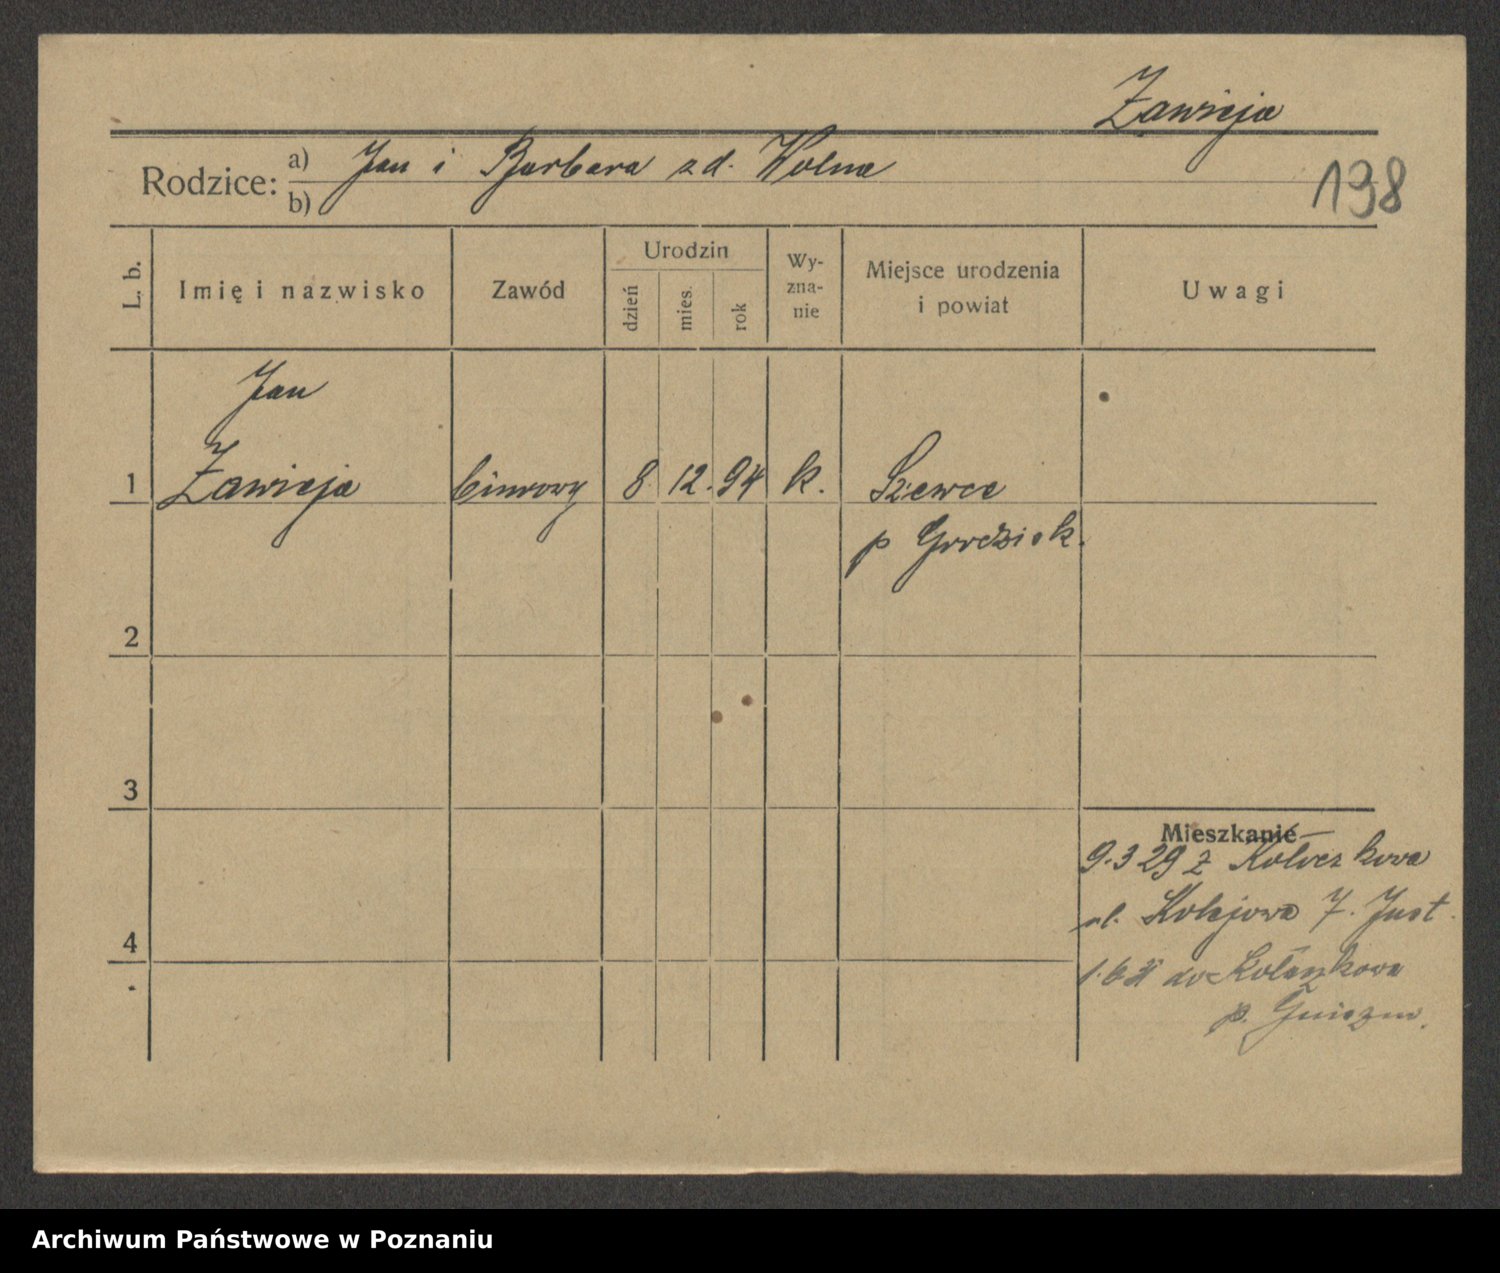 Zawieja
Rodzice: a) Jan i Barbara zd. Wolna
b)
198
L. b. Imię i nazwisko Zawód Urodzin dzień mies. rok Wyznanie Miejsce urodzenia i powiat Uwagi
Jan
1 Zawieja biurowy 8. 12. 94 k. Szewce
p Grodzisk.
2
3
Mieszkanie
9.3 29 z
4 ul. Kolejowa 7. Just.
do Kołaczkowa
p. Gniezno.
Archiwum Państwowe w Poznaniu